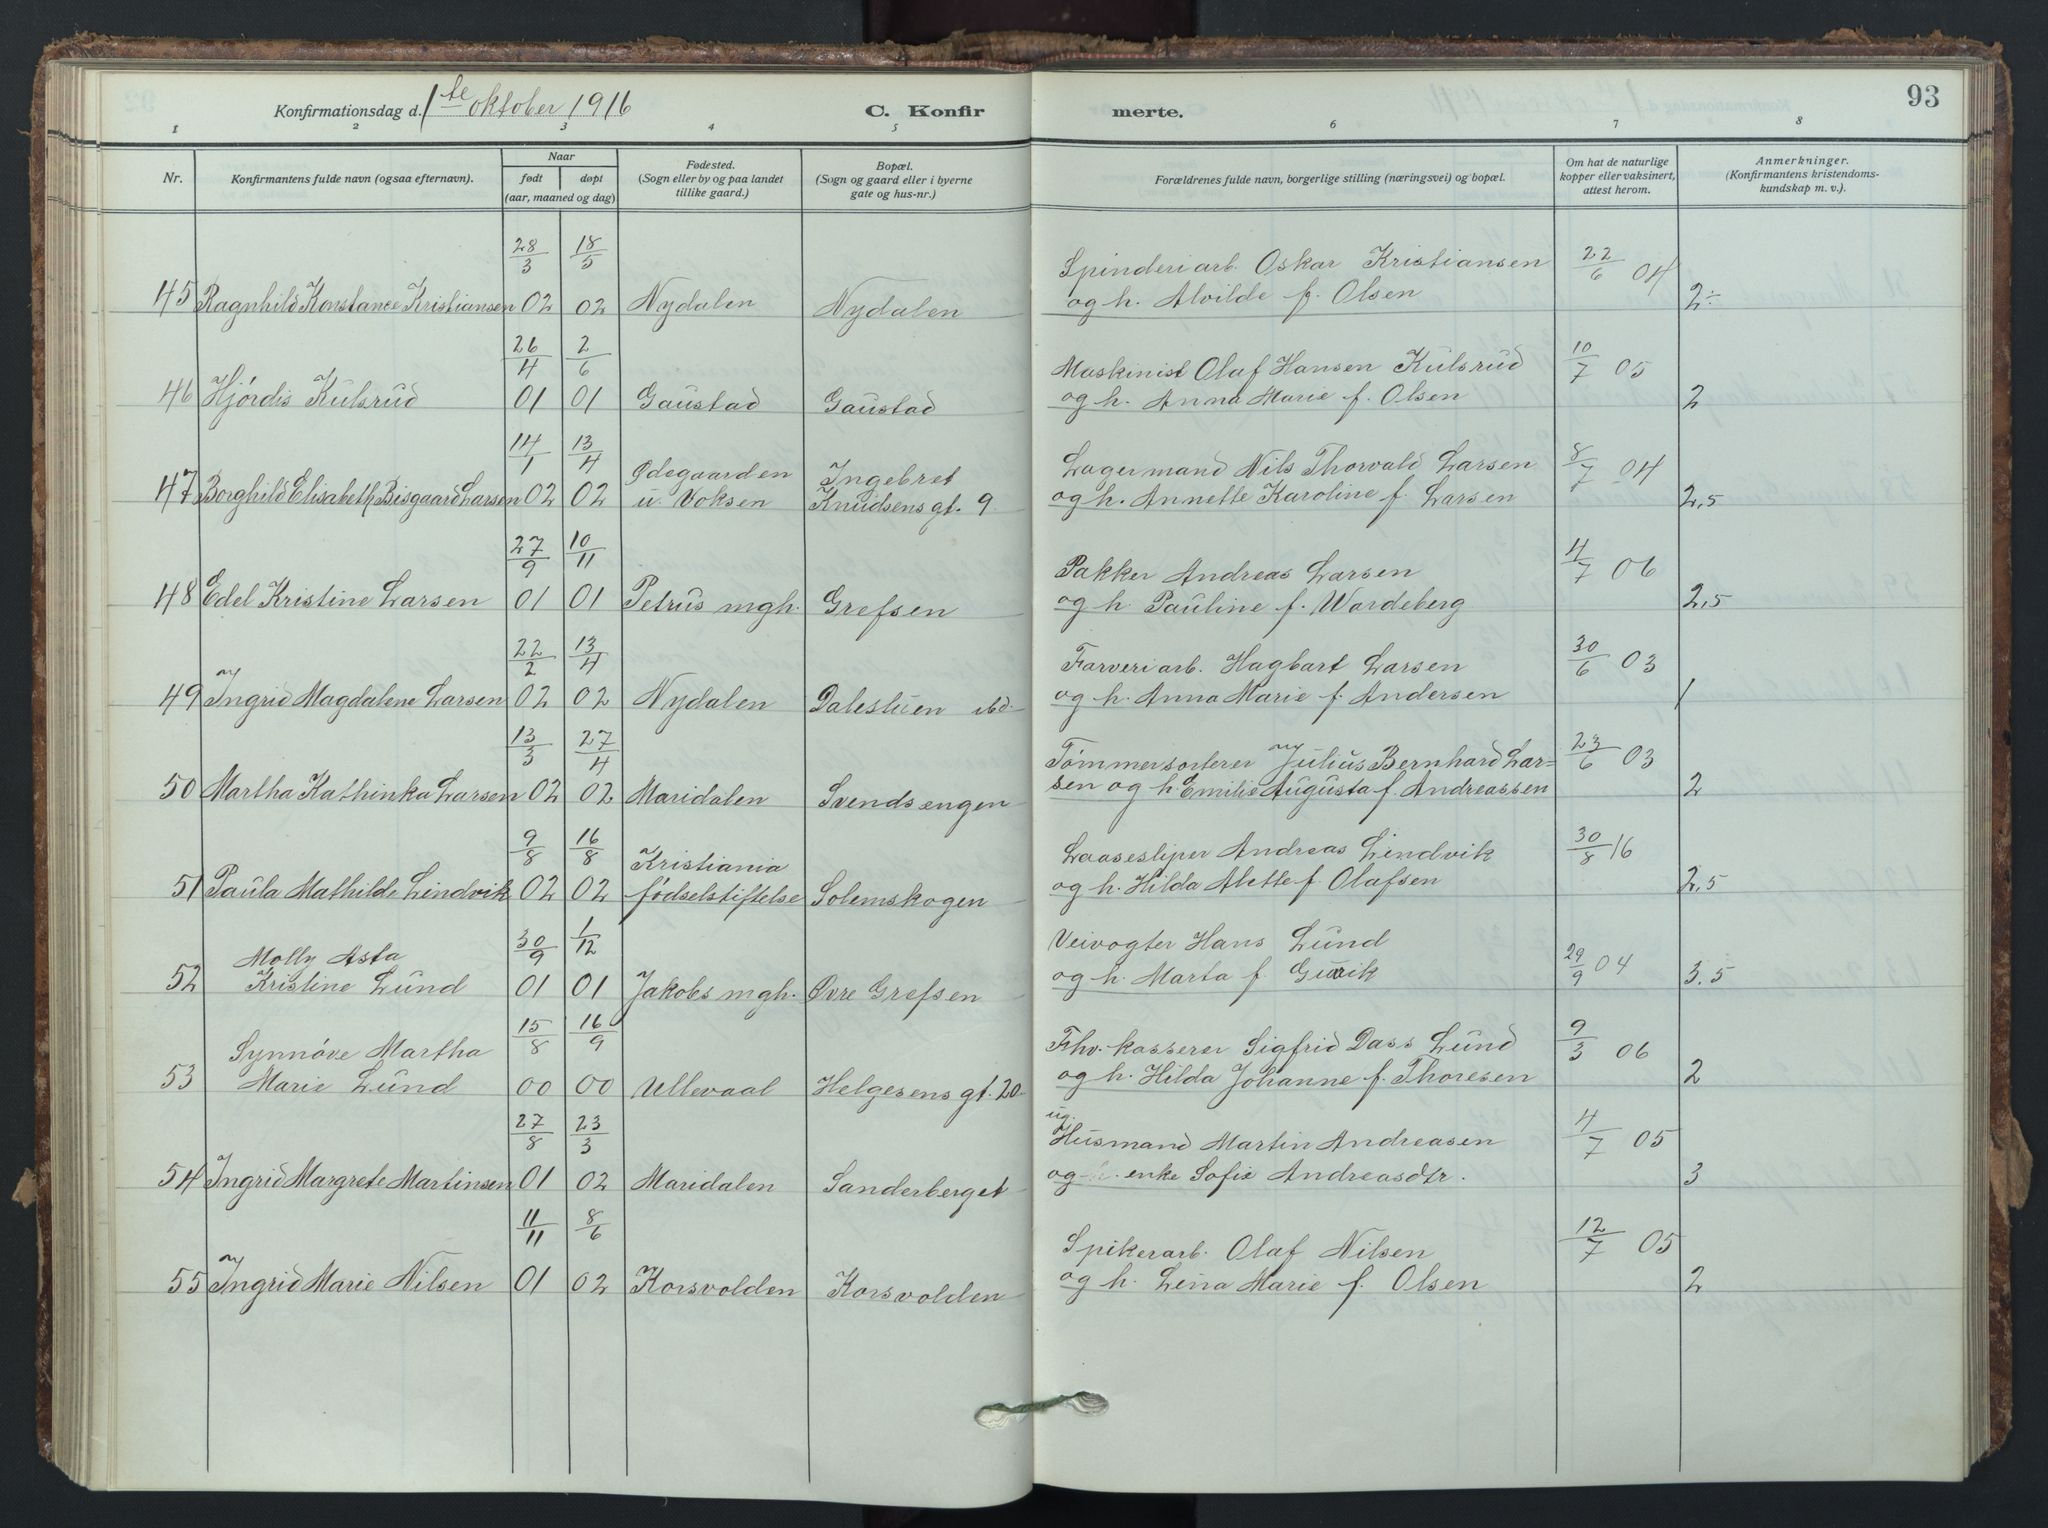 Konfirmationsdag d. 1ste oktober 1916
C. Konfirmerte.
93
1 2 3 4 5 6 7 8
Nr. Konfirmantens fulde navn (ogsaa efternavn). Naar født døpt (aar, maaned og dag) Fødested. (Sogn eller by og paa landet tillike gaard.) Bopæl. (Sogn og gaard eller i byerne gate og hus-nr.) Forældrenes fulde navn, borgerlige stilling (næringsvei) og bopæl. Om hat de naturlige kopper eller vaksinert, attest herom. Anmerkninger. (Konfirmantens kristendomskundskap m. v.).
28/3 18/5 Spinderiarb. Oskar Kristiansen 22/6 04
45 Ragnhild Konstance Kristiansen 02 02 Nydalen Nydalen og h. Alvilde f. Olsen 2÷
26/4 2/6 Maskinist Olaf Hansen Kulsrud 10/7 05
46 Hjørdis Kulsrud 01 01 Gaustad Gaustad og h. Anna Marie f. Olsen 2
14/1 13/4 Ødegaarden Ingebret Lagermand Nils Thorvald Larsen 8/7 04
47 Borghild Elisabeth Bisgaard Larsen 02 02 u. Voksen Knudsens gt. 9 og h. Annette Karoline f. Larsen 2,5
27/9 10/11 Pakker Andreas Larsen 4/7 06
48 Edel Kristine Larsen 01 01 Petrus mgh. Grefsen og h. Pauline f. Wardeberg 2,5
22/2 13/4 Farveriarb. Hagbart Larsen 30/6 03
49 Ingrid Magdalene Larsen 02 02 Nydalen Dalestuen ibd. og h. Anna Marie f. Andersen 1
13/3 27/4 Tømmersorterer Julius Bernhard Lar= 23/6 03
50 Martha Kathinka Larsen 02 02 Maridalen Svendsengen sen og h. Emilie Augusta f. Andreassen 2
9/8 16/8 Kristiania Laasesliper Andreas Lindvik 30/8 16
51 Paula Mathilde Lindvik 02 02 fødselstiftelse Solemskogen og h. Hilda Alette f. Olafsen 2,5
Molly Asta 30/9 1/12 Veivogter Hans Lund 29/9 04
52 Kristine Lund 01 01 Jakobs mgh. Øvre Grefsen og h. Marta f. Gurik 3,5
Synnøve Martha 15/8 16/9 Fhv. kasserer Sigfrid Dass Lund 9/3 06
53 Marie Lund 00 00 Ullevaal Helgesens gt. 20 og h. Hilda Johanne f. Thoresen 2
27/8 23/3 ug. Husmand Martin Andreasen 4/7 05
54 Ingrid Margrete Martinsen 01 02 Maridalen Sanderberget og enke Sofie Andreasdtr. 3
11/11 8/6 Spikerarb. Olaf Nilsen 12/7 05
55 Ingrid Marie Nilsen 01 02 Korsvolden Korsvolden og h. Lina Marie f. Olsen 2